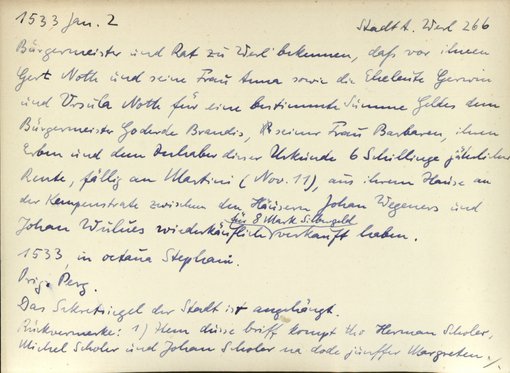 1533 Jan. 2 StadtA. Werl 266
Bürgermeister und Rat zu Werl bekennen, daß vor ihnen
Gert Noth und seine Frau Anna sowie die Eheleute Gerwin
und Ursula Noth für eine bestimmte Summe Geldes dem
Bürgermeister Goderde Brandis, seiner Frau Barbaren, ihren
Erben und dem Inhaber dieser Urkunde 6 Schillinge jährlicher
Rente, fällig an Martini (Nov. 11), aus ihrem Hause an
der Kempenstrate zwischen den Häusern Johan Wegeners und
für 8 Mark Silbergeld
Johan Wulues wiederkäuflich verkauft haben.
1533 in octaua Stephani.
Orig. Perg.
Das Sekretsiegel der Stadt ist angehängt.
Rückvermerke: 1) Item düsse briff kompt tho Herman Scholer,
Michel Scholer und Johan Scholer na dode junffer Margreten./.